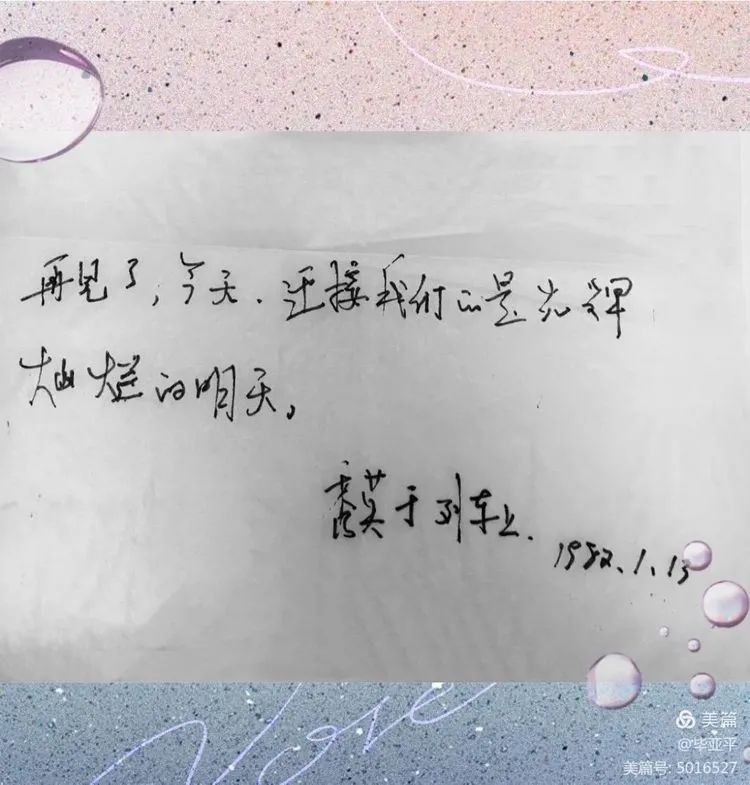 再见了，今天．迎接我们的是光辉
灿烂的明天。
秀英于列车上．
1982.1.13
美篇
@毕亚平
美篇号: 5016527